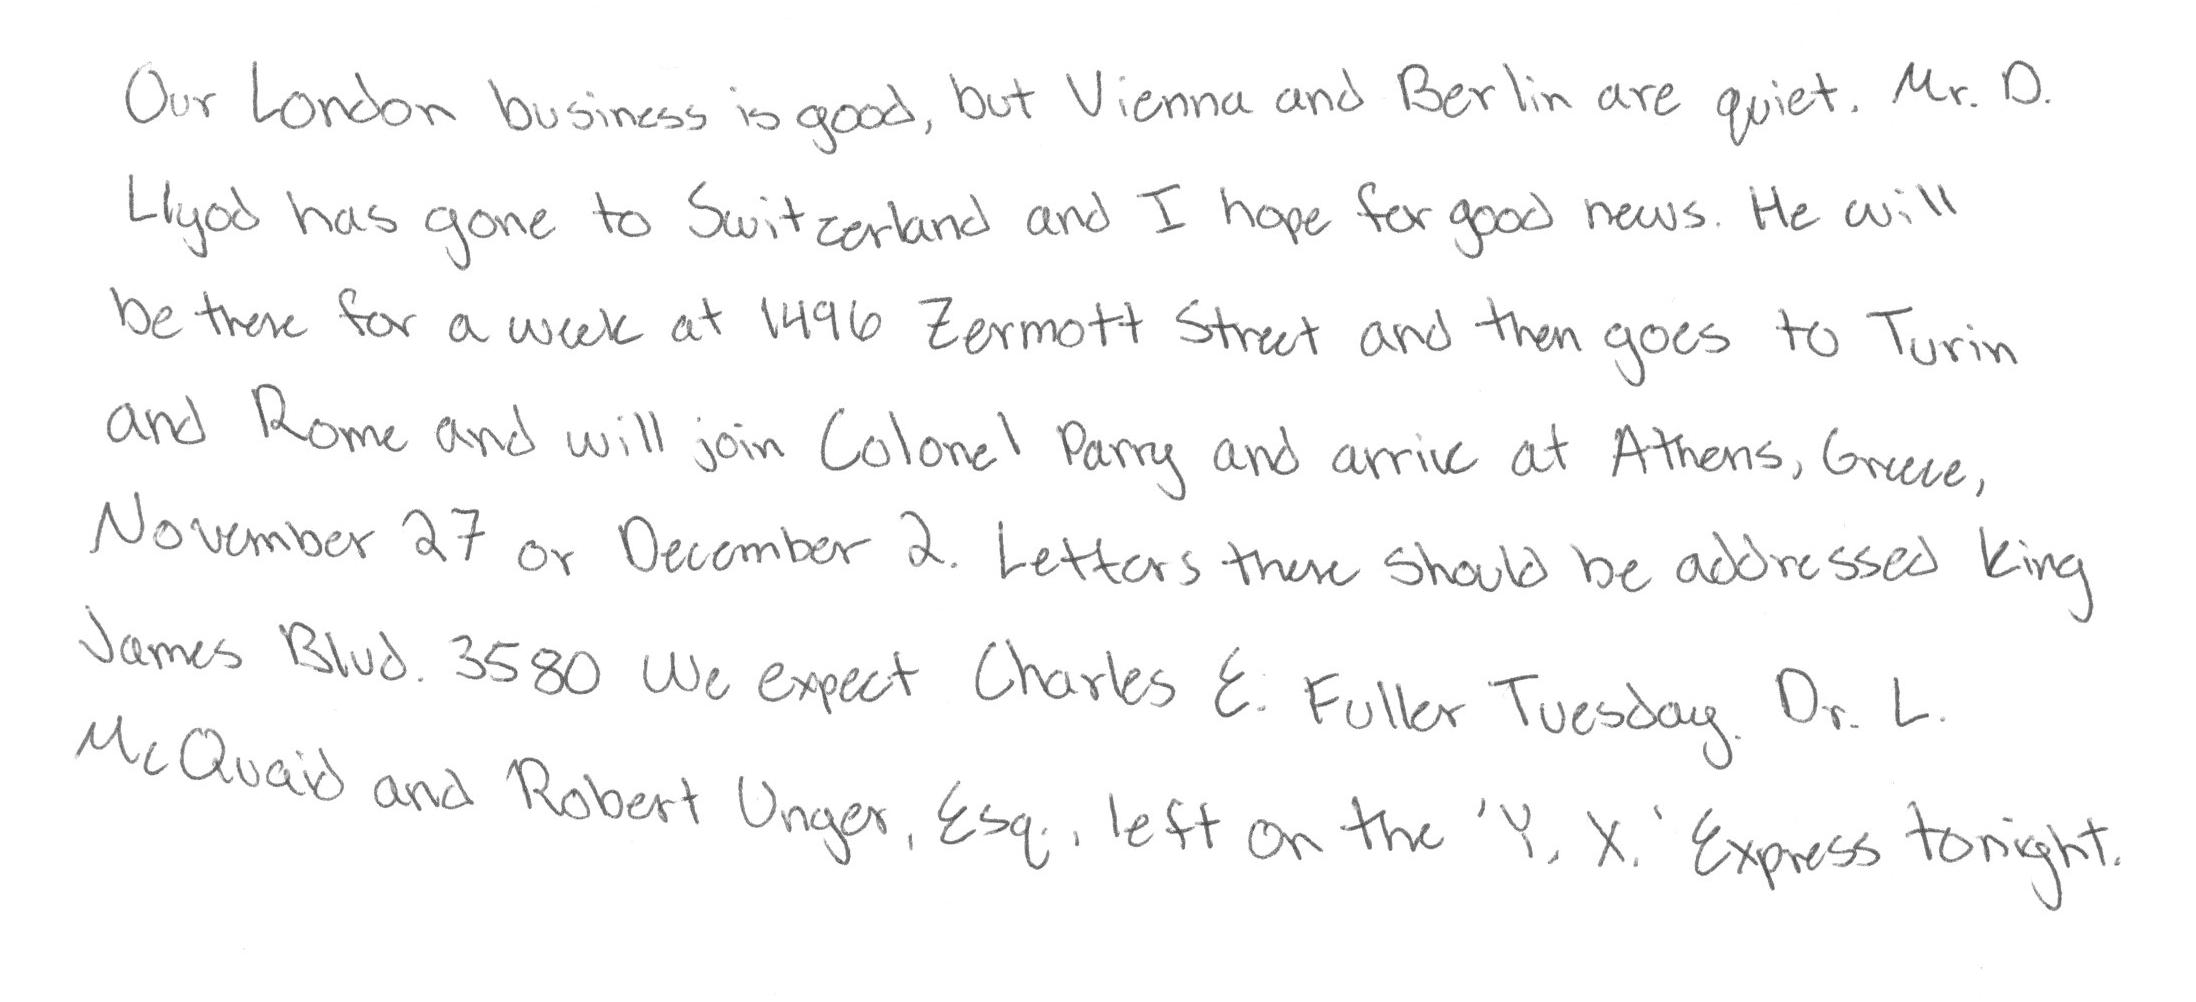 Our London business is good, but Vienna and Berlin are quiet. Mr. D.
Llyod has gone to Switzerland and I hope for good news. He will
be there for a week at 1496 Zermott Street and then goes to Turin
and Rome and will join Colonel Parry and arrive at Athens, Greece,
November 27 or December 2. Letters there should be addressed King
James Blvd. 3580 We expect Charles E. Fuller Tuesday. Dr. L.
McQuaid and Robert Unger, Esq., left on the 'Y, X.' Express tonight.